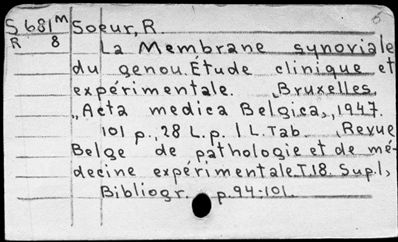 S 681 M Soeur, R.
R 8
La Membrane synoviale
du genou. Étude clinique et
expérimentale. Bruxelles,
"Acta medica Belgica", 1947.
101 p., 28 L.p. 1 L. Tab. (Revue
Belge de pathologie et de mé-
decine expérimentale. T.18. Supl),
Bibliogr. p. 94-101.